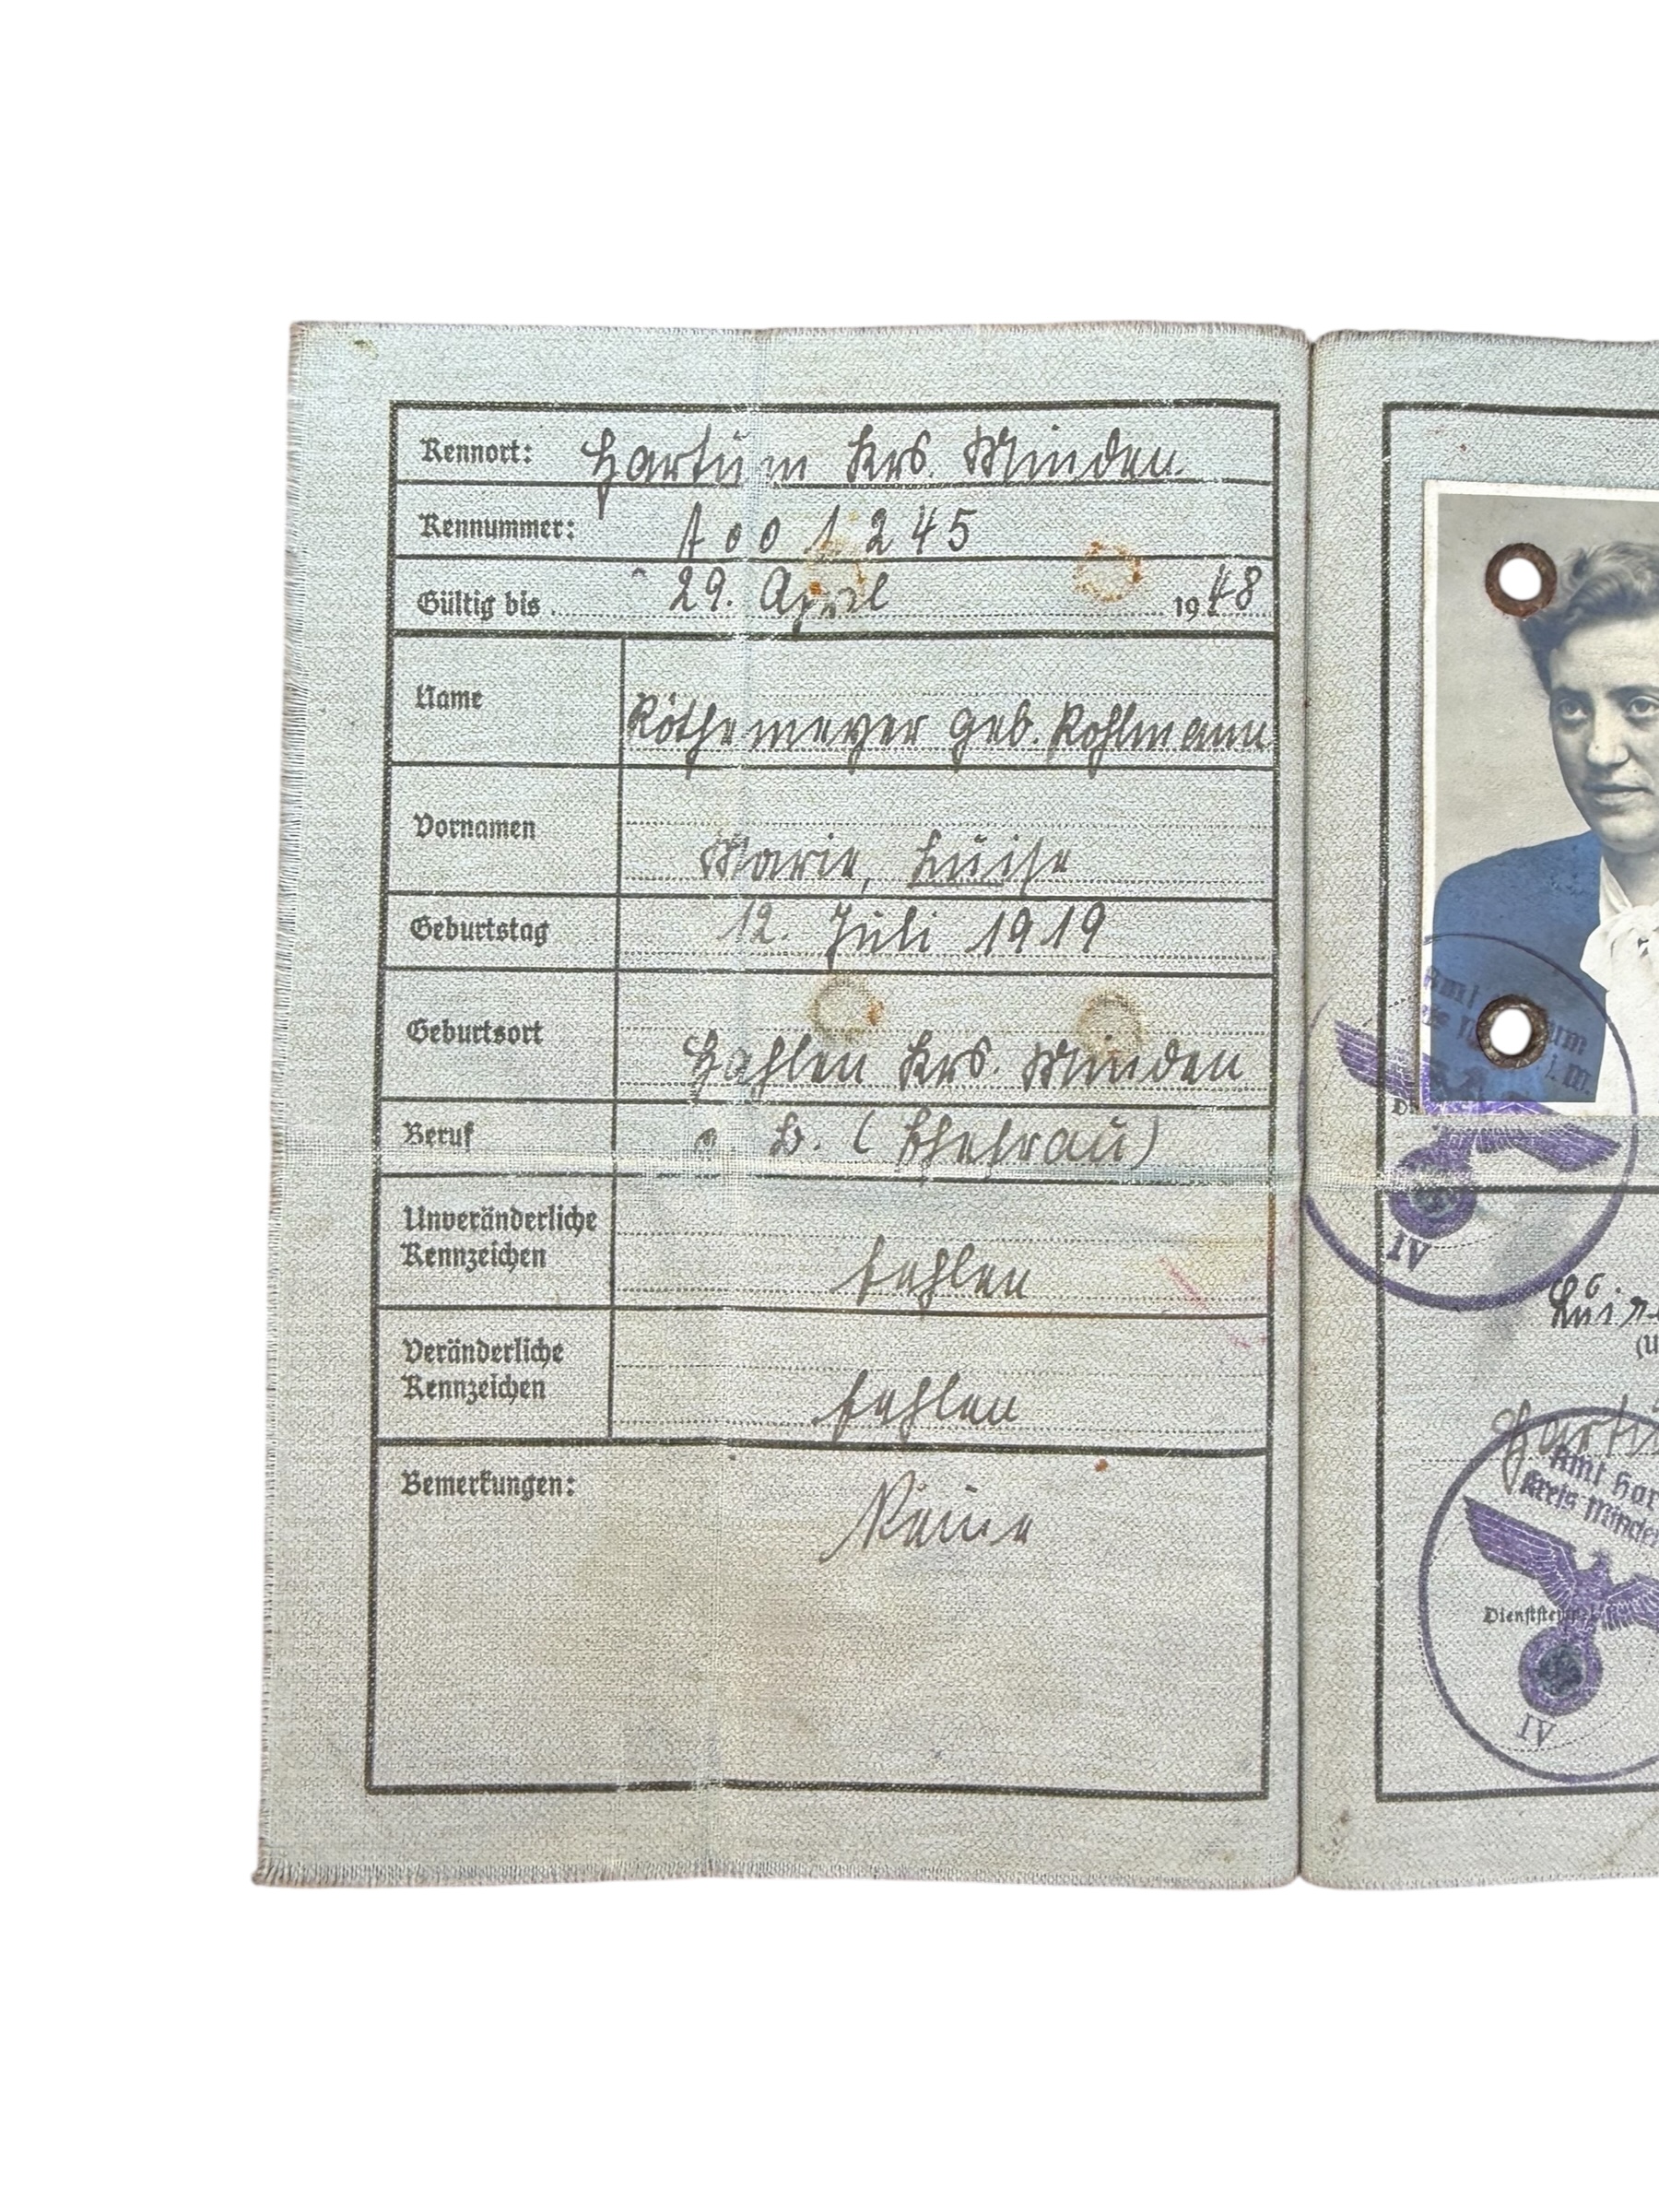 Kennort: Hartum Krs. Minden.
Kennummer: A 001245
Gültig bis 29. April 1948
Name Röthemeyer geb. Rohlmann
Vornamen Marie, Luise
Geburtstag 12. Juli 1919
Geburtsort Hahlen Krs. Minden
Beruf o. B. (Ehefrau)
Unveränderliche
Kennzeichen fehlen
Veränderliche
Kennzeichen fehlen
Bemerkungen: Keine
Amt
IV
Amt Har
Kreis Minden
Dienststempel
IV